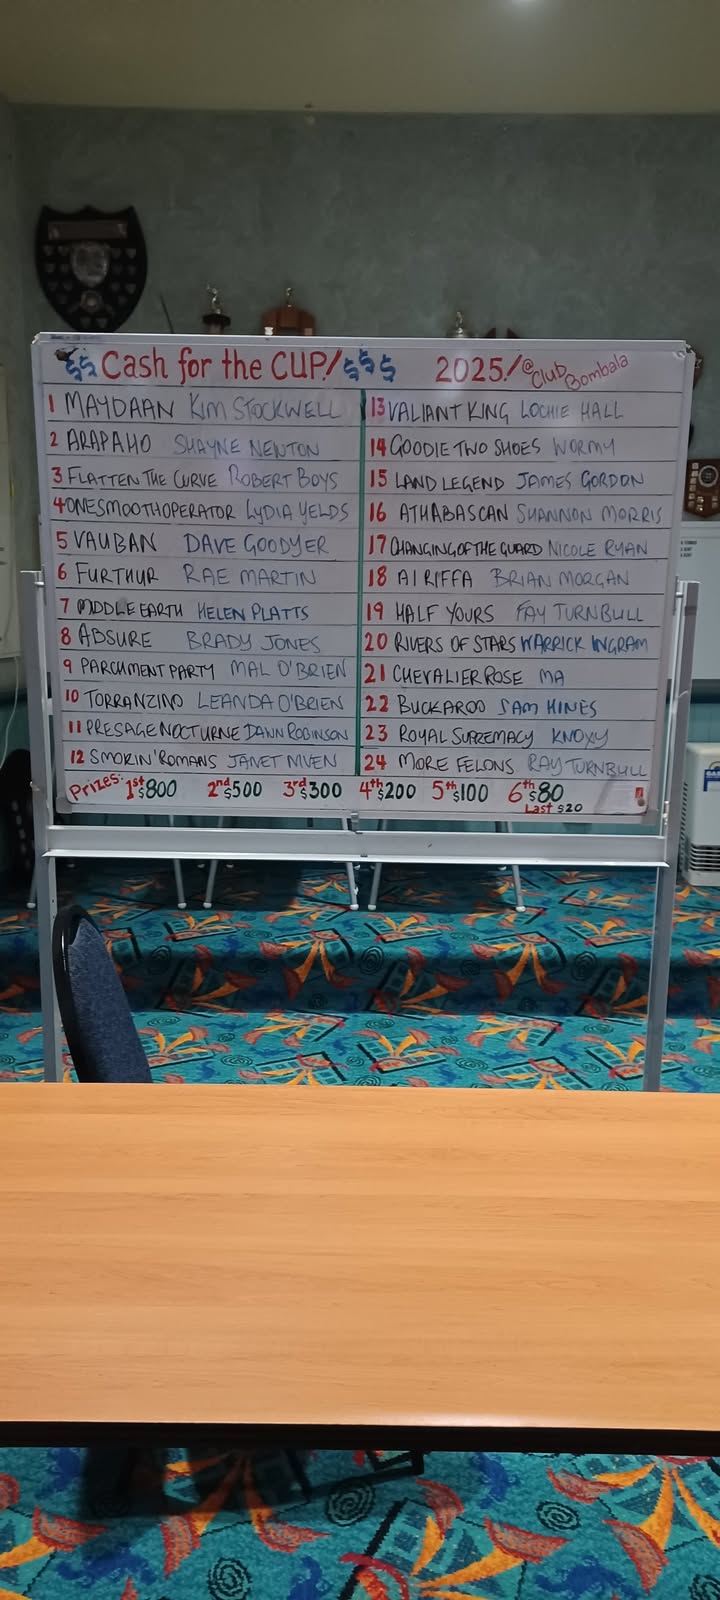 $$ Cash for the CUP! $$$ 2025! @ Club Bombala
1 MAYDAAN KIM STOCKWELL
2 ARAPAHO SHAYNE NEWTON
3 FLATTEN THE CURVE ROBERT BOYS
4 ONESMOOTHOPERATOR LYDIA YELDS
5 VAUBAN DAVE GOODYER
6 FURTHUR RAE MARTIN
7 MIDDLE EARTH HELEN PLATTS
8 ABSURE BRADY JONES
9 PARCHMENT PARTY MAL O'BRIEN
10 TORRANZINO LEANDA O'BRIEN
11 PRESAGE NOCTURNE DANN ROBINSON
12 SMOKIN' ROMANS JANET NIVEN
13 VALIANT KING LOCHIE HALL
14 GOODIE TWO SHOES WORMY
15 LAND LEGEND JAMES GORDON
16 ATHABASCAN SHANNON MORRIS
17 CHANGING OF THE GUARD NICOLE RYAN
18 AI RIFFA BRIAN MORGAN
19 HALF YOURS FAY TURNBULL
20 RIVERS OF STARS WARRICK INGRAM
21 CHEVALIER ROSE MA
22 BUCKAROO SAM HINES
23 ROYAL SUPREMACY KNOXY
24 MORE FELONS RAY TURNBULL
Prizes: 1st $800 2nd $500 3rd $300 4th $200 5th $100 6th $80
Last $20